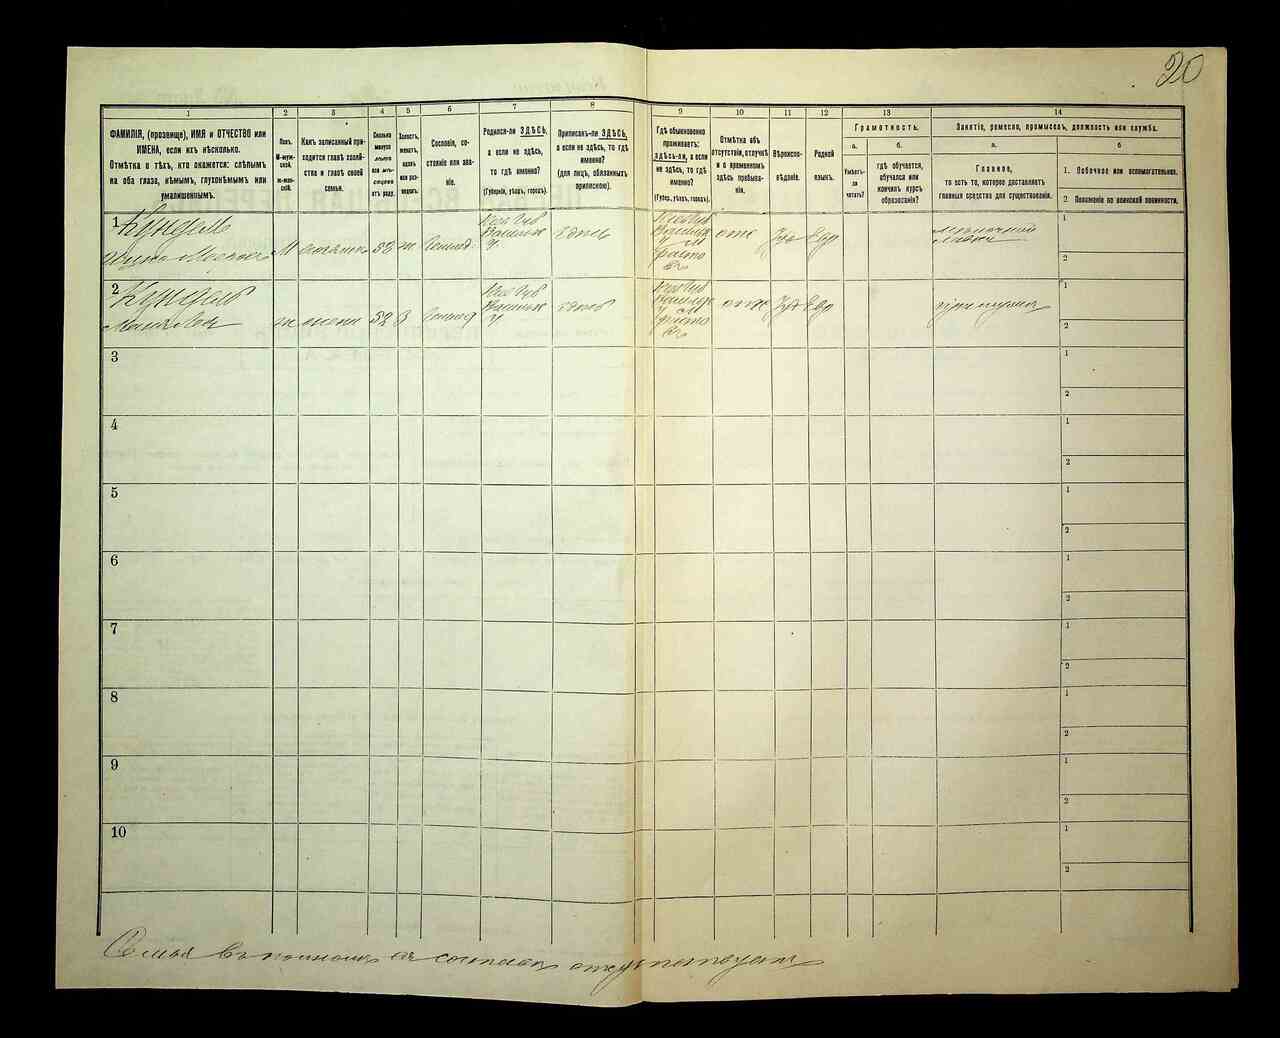 20
1
2
3
4
5
6
7
8
9
10
11
12
13
14
ФАМИЛІЯ, (прозвище), ИМЯ и ОТЧЕСТВО или
ИМЕНА, если ихъ нѣсколько.
Отмѣтка о тѣхъ, кто окажется: слѣпымъ
на оба глаза, нѣмымъ, глухонѣмымъ или
умалишеннымъ.
Полъ.
М-муж-
ской.
Ж-жен-
скій.
Какъ записанный при-
ходится главѣ хозяй-
ства и главѣ своей
семьи.
Сколько
минуло
лѣтъ
или мѣ-
сяцевъ
отъ роду.
Холостъ,
женатъ,
вдовъ
или раз-
веденъ.
Сословіе, со-
стояніе или зва-
ніе.
Родился-ли ЗДѢСЬ,
а если не здѣсь,
то гдѣ именно?
(Губернія, уѣздъ, городъ).
Приписанъ-ли ЗДѢСЬ,
а если не здѣсь, то гдѣ
именно?
(для лицъ, обязанныхъ
припискою).
Гдѣ обыкновенно
проживаетъ:
ЗДѢСЬ-ли, а если
не здѣсь, то гдѣ
именно?
(Губер., уѣздъ, городъ).
Отмѣтка объ
отсутствіи, отлучкѣ
и о временномъ
здѣсь пребыва-
ніи.
Вѣроиспо-
вѣданіе.
Родной
языкъ.
Грамотность.
а.
Умѣетъ-
ли
читать?
б.
гдѣ обучается,
обучался или
кончилъ курсъ
образованія?
Занятіе, ремесло, промыселъ, должность или служба.
а.
Главное,
то есть то, которое доставляетъ
главныя средства для существованія.
б
1. Побочное или вспомогательное.
2. Положеніе по воинской повинности.
1
Кундель
М
52
ж
Кіев Губ
Василь
у
здесь
Кіев Губ
Василь
у М
Фасто
въ
отс
Іуд
Евр
мелочной
лавки
1
2
2
Кундель
ж
жена
52
З
Кіев Губ
Василь
у
здесь
Кіев Губ
у М
Фасто
въ
отс
Іуд
Евр
при муже
1
2
3
1
2
4
1
2
5
1
2
6
1
2
7
1
2
8
1
2
9
1
2
10
1
2
Семья въ полномъ составе отсутствуетъ